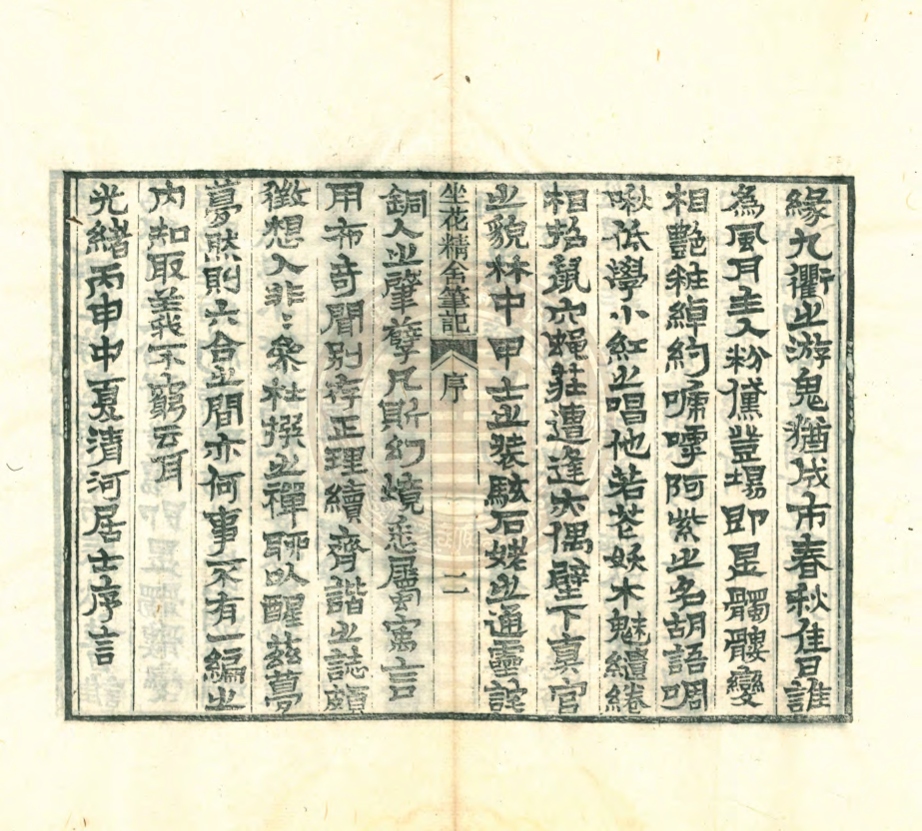 緣九衢之游鬼猶成市春秋佳日誰
為風月主人粉儻登場即是髑髏變
相艷粧綽約嘯雩阿紫之名胡語啁
啾低學小紅之唱他若芲妖木魅繾綣
相招鼠穴蝿莊遭逢大偶壁下真官
之貌林中甲士之裝駭石姥之通靈詫
坐花精舍筆記 序 二
銅人之肇孽凡斯幻境悉屬寓言
用布奇聞別存正理續齊諧之誌頗
徵想入非非參杜撰之禪聊以醒茲夢
夢然則六合之間亦何事不有一編之
內知取義不窮云耳
光緒丙申中夏清河居士序言